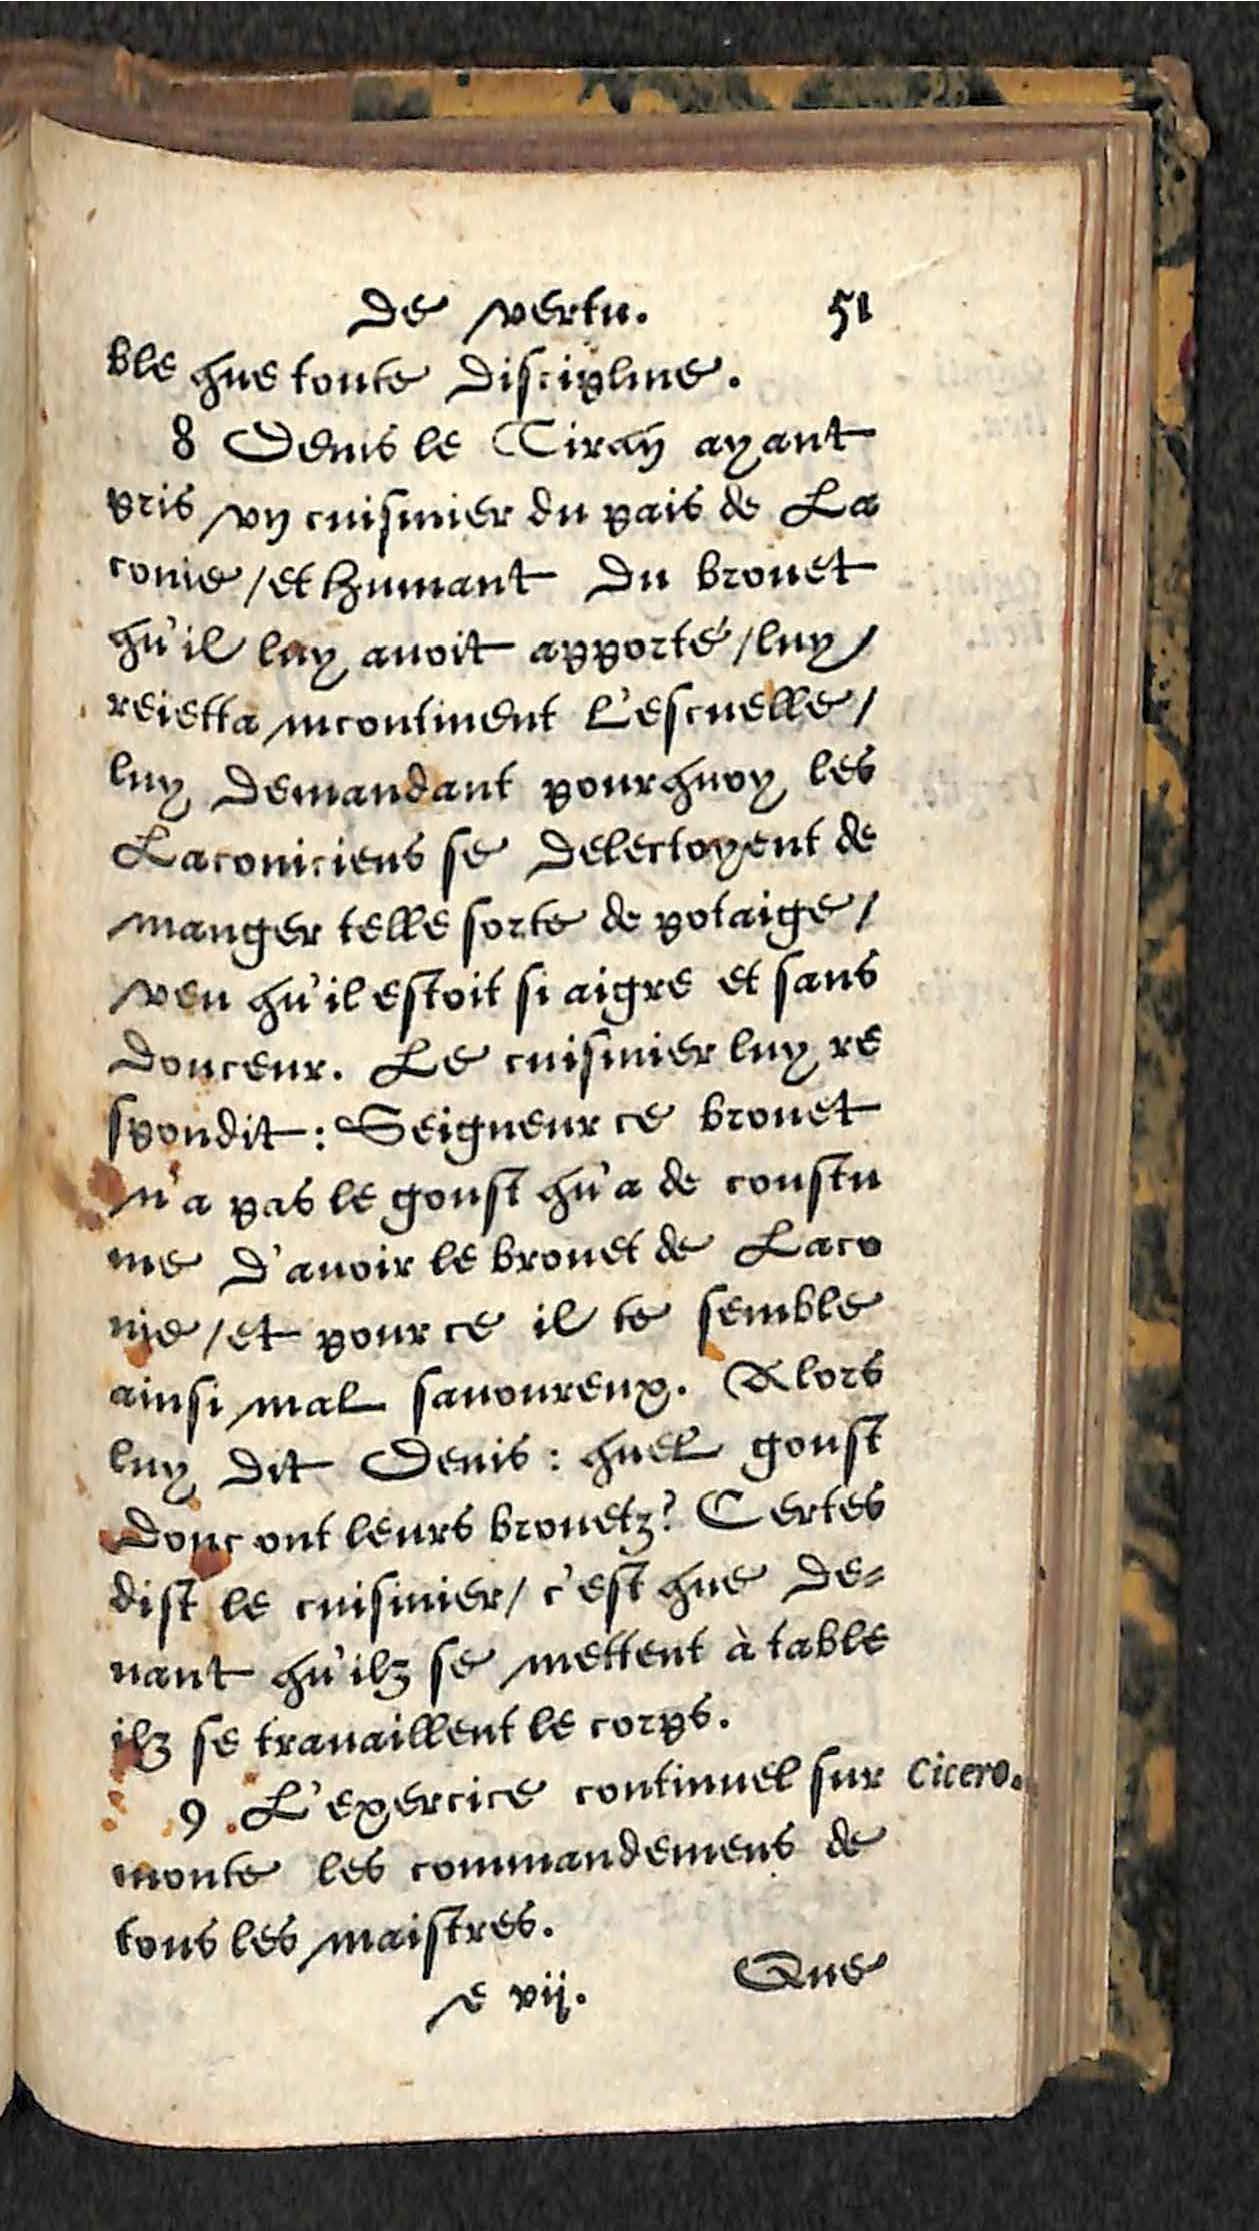 de vertu. 51
ble que toute discipline.
8 Denis le Tiran ayant
pris vn cuisinier du païs de La
conie / et humant du brouet
qu'il luy auoit apporté / luy
reietta incontinent l'escuelle /
luy demandant pourquoy les
Laconiciens se delectoyent de
manger telle sorte de potaige /
veu qu'il estoit si aigre et sans
douceur. Le cuisinier luy re
spondit : Seigneur ce brouet
n'a pas le goust qu'a de coustu
me d'auoir le brouet de Laco
nie / et pource il te semble
ainsi mal sauoureux. Alors
luy dit Denis : quel goust
donc ont leurs brouetz? Certes
dist le cuisinier / c'est que de-
uant qu'ilz se mettent à table
ilz se trauaillent le corps.
9 L'exercice continuel sur Cicero.
monte les commandemens de
tous les maistres.
e vij. Que